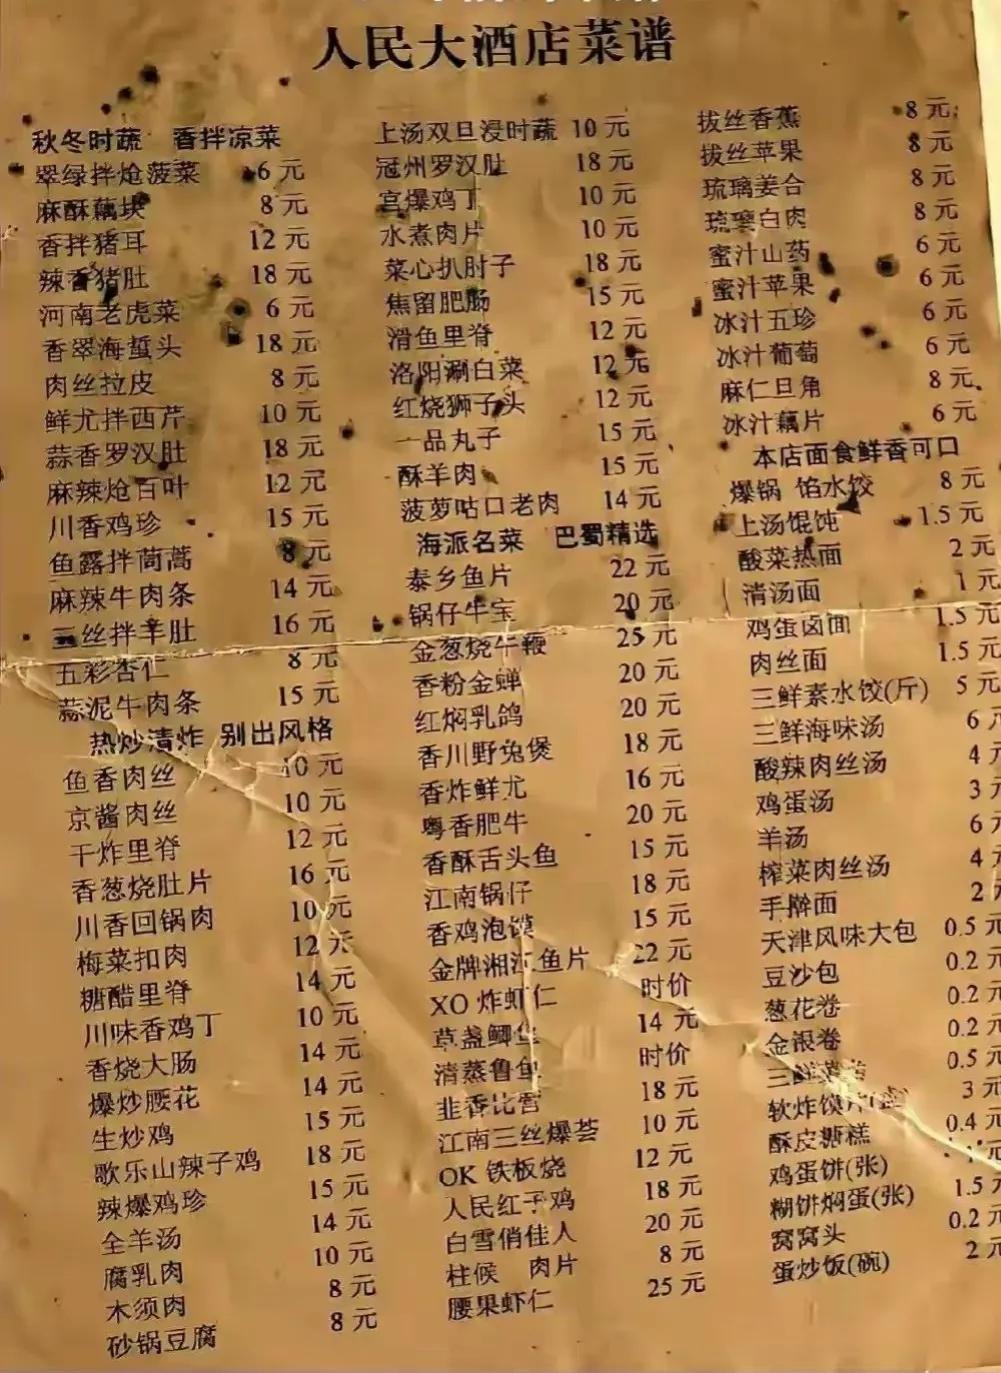 人民大酒店菜谱
秋冬时蔬 香拌凉菜
翠绿拌炝菠菜 6元
麻酥藕块 8元
香拌猪耳 12元
辣香猪肚 18元
河南老虎菜 6元
香翠海蜇头 18元
肉丝拉皮 8元
鲜尤拌西芹 10元
蒜香罗汉肚 18元
麻辣炝百叶 12元
川香鸡珍 15元
鱼露拌茼蒿 8元
麻辣牛肉条 14元
三丝拌羊肚 16元
五彩杏仁 8元
蒜泥牛肉条 15元
热炒清炸 别出风格
鱼香肉丝 10元
京酱肉丝 10元
干炸里脊 12元
香葱烧肚片 16元
川香回锅肉 10元
梅菜扣肉 12元
糖醋里脊 14元
川味香鸡丁 10元
香烧大肠 14元
爆炒腰花 14元
生炒鸡 15元
歌乐山辣子鸡 18元
辣爆鸡珍 15元
全羊汤 14元
腐乳肉 10元
木须肉 8元
砂锅豆腐 8元
上汤双旦浸时蔬 10元
冠州罗汉肚 18元
宫爆鸡丁 10元
水煮肉片 10元
菜心扒肘子 18元
焦留肥肠 15元
滑鱼里脊 12元
洛阳涮白菜 12元
红烧狮子头 12元
一品丸子 15元
酥羊肉 15元
菠萝咕口老肉 14元
海派名菜 巴蜀精选
泰乡鱼片 22元
锅仔牛宝 20元
金葱烧牛鞭 25元
香粉金蝉 20元
红焖乳鸽 20元
香川野兔煲 18元
香炸鲜尤 16元
粤香肥牛 20元
香酥舌头鱼 15元
江南锅仔 18元
香鸡泡馍 15元
金牌湘江鱼片 22元
XO炸虾仁 时价
草盏鲫鱼 14元
清蒸鲁鱼 时价
韭香比管 18元
江南三丝爆荟 10元
OK铁板烧 12元
人民红子鸡 18元
白雪俏佳人 20元
柱候 肉片 8元
腰果虾仁 25元
拔丝香蕉 8元
拔丝苹果 8元
琉璃姜合 8元
琉璃白肉 8元
蜜汁山药 6元
蜜汁苹果 6元
冰汁五珍 6元
冰汁葡萄 6元
麻仁旦角 8元
冰汁藕片 6元
本店面食鲜香可口
爆锅 馅水饺 8元
上汤馄饨 1.5元
酸菜热面 2元
清汤面 1元
鸡蛋卤面 1.5元
肉丝面 1.5元
三鲜素水饺(斤) 5元
三鲜海味汤 6元
酸辣肉丝汤 4元
鸡蛋汤 3元
羊汤 6元
榨菜肉丝汤 4元
手擀面 2元
天津风味大包 0.5元
豆沙包 0.2元
葱花卷 0.2元
金银卷 0.2元
三鲜蒸 0.5元
软炸馍片 3元
酥皮糖糕 0.4元
鸡蛋饼(张) 元
糊饼焖蛋(张) 1.5元
窝窝头 0.2元
蛋炒饭(碗) 2元